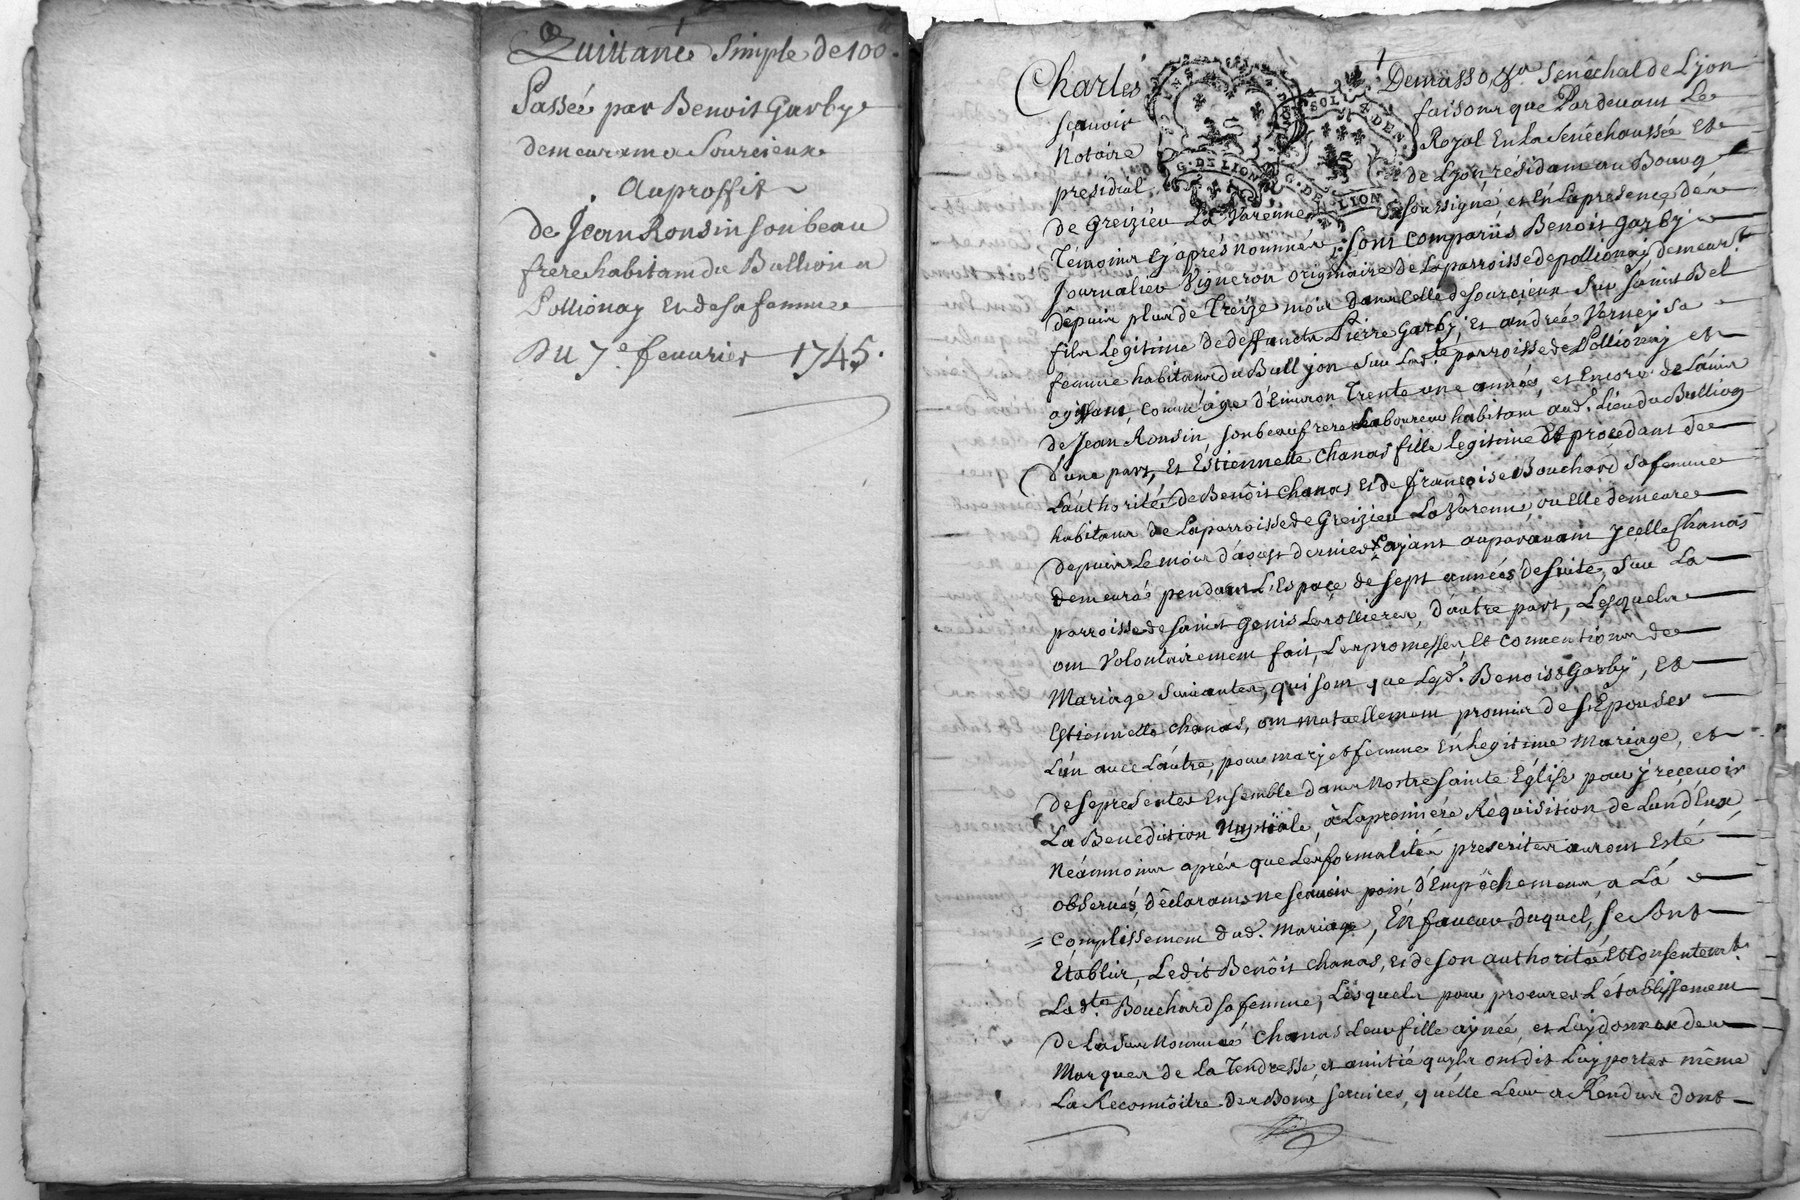 Quittance Simple de 100.tt
Passée par Benoit Garby
demeurant a Sourcieux
Au proffit
de Jean Ronsin son beau
frere habitant du Bullion a
Pollionay et de sa femme
Du 7e. feuurier 1745.
Charles Demasso, &a Senéchal de Lyon
sçauoir faisons que Pardeuant Le
Notaire Royal En la Senéchaussée et
presidial de Lyon, résidant au Bourg
de Greizieu La Varenne, soussigné, et En La presence des
Témoins cy aprés nommés, sont comparûs Benoit Garby
Journalier Vigneron originaire de La parroisse de pollionay demeurt
dépuis plus de Treize mois dans celle de sourcieux sur saint Bel
fils Légitime de deffuncts Pierre Garby, et andrée Verney sa
femme habitans du Bullyon sur Lad.te parroisse de Pollionay et
agissant, comm'âgé d'Enuiron Trente une années, et Encore de L'auis
de Jean Ronsin, son beaufrere Laboureur habitant aud. Lieu du Bulliog
D'une part, Et Estiennette Chanas fille legitime Et procedant de
L'authorité de Benôit Chanas et de françoise Bouchard sa femme
habitans de La parroisse de Greizieu La Varenne, ou Elle demeure
depuis Le mois d'aoust dernier ayant auparauant Jcelle Chanas
demeuré pendant L'Espace de sept années de suite, sur La
parroisse de saint Genis Les ollieres, d'autre part, Lesquels
ont Volontairement fait, Les promesses et conuentions de
Mariage suiuantes, qui sont que Lesd. Benoist Garby, et
Estiennette Chanas, ont mutuellement promis de s'Epouser
L'un auec L'autre, pour mary et femme En Legitime Mariage, et
de se presenter Ensemble dans Nostre sainte Eglise pour y reçeuoir
La Benediction Nuptiale, à La premiére Réquisition de L'un d'Eux,
Néanmoins aprés que Les formalités prescrites auront Esté
obseruées, déclarans ne scauoir point d'Empêchemens, a L'á
= complissement dud. Mariage, En faueur duquel, se sont
Etablis, Ledit Benôit Chanas, et de son authorité et consentemt.
Lad.te Bouchard sa femme, Lesquels pour procurer L'établissement
de La sus Nommée Chanas leur fille aynée, et Luy donner des
Marques de La Tendresse, et amitié qu'yls ont dit Luy porter même
La Reconnôitre des Bons seruices, qu'elle Leur a Rendus dont